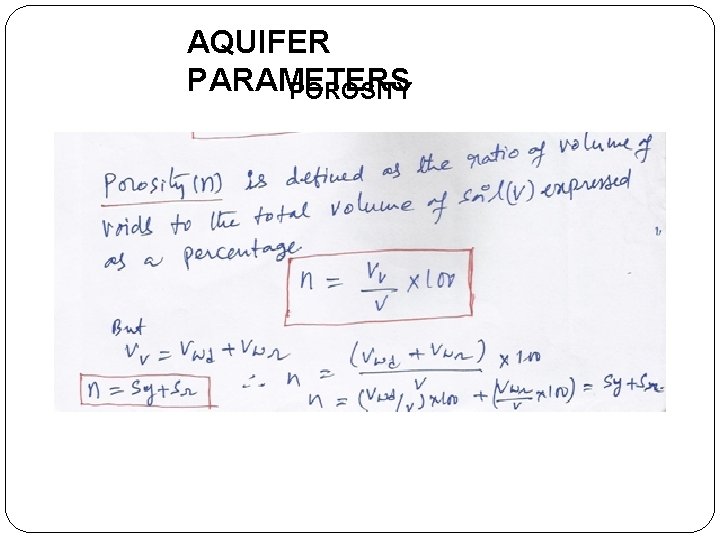 AQUIFER
PARAMETERS
POROSITY
Porosity (n) is defined as the ratio of volume of
voids to the total volume of soil (V) expressed
as a percentage.
n = Vv/V × 100
But
Vv = Vwd + Vwr
∴ n = (Vwd + Vwr)/V × 100
n = Sy + Sr
n = (Vwd/V) × 100 + (Vwr/V × 100) = Sy + Sr